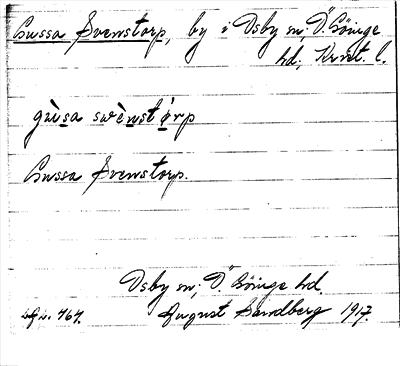 Gussa Svenstorp, by i Osby sn; Ö. Göinge
hd, Krist. l.
gùsa swènstórp
Gussa Svenstorp.
Osby sn; Ö. Göinge hd.
August Sandberg 1917.